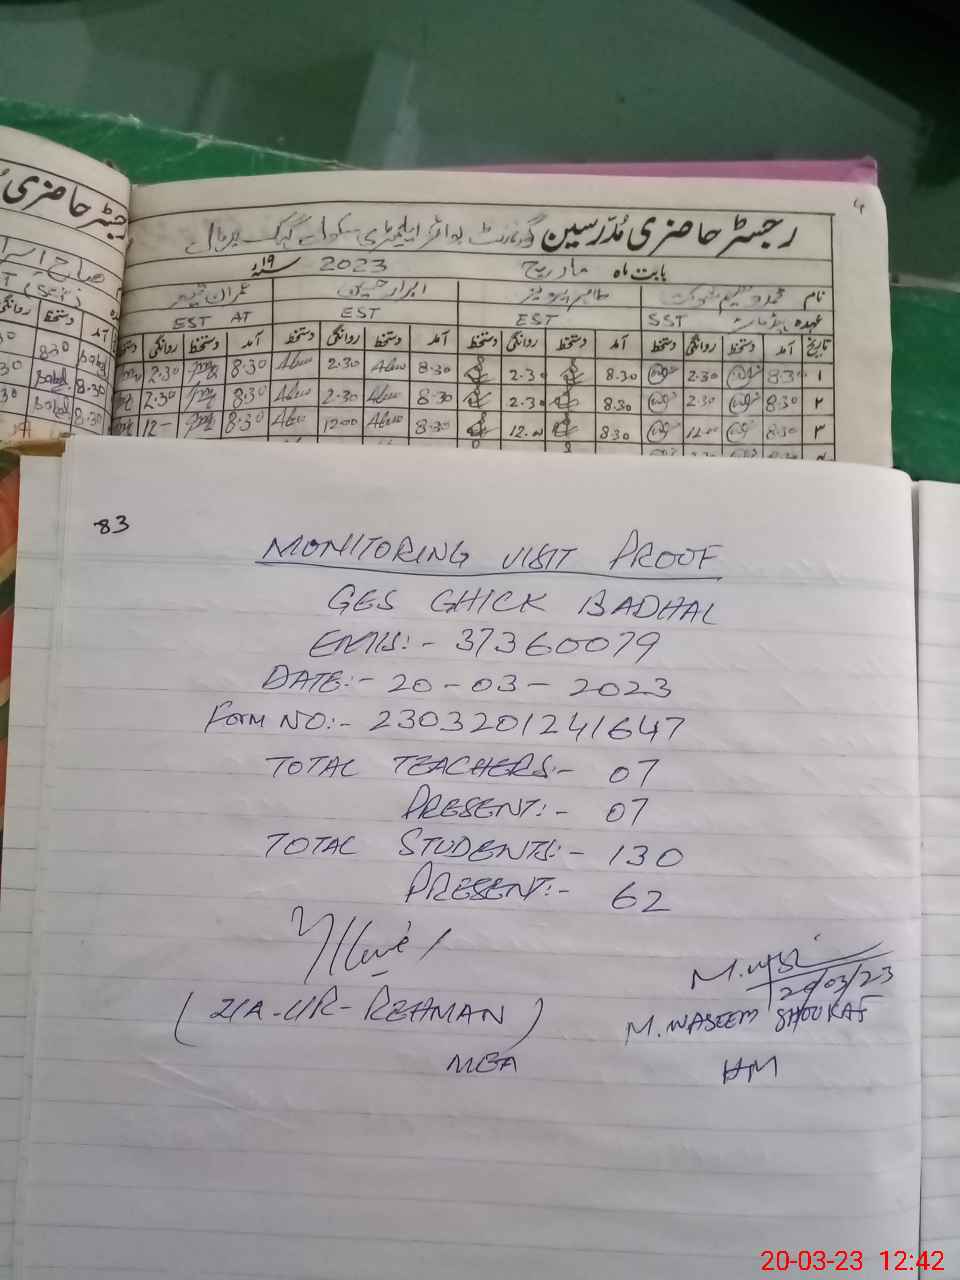 رجسٹر حاضری مُدرّسین گورنمنٹ بوائز ایلیمنٹری سکول
بابت ماہ مارچ 2023 ۱۹ء
نام طاہر پرویز ابرار حسین عمران
عہدہ SST EST EST EST AT
تاریخ آمد دستخط روانگی دستخط آمد دستخط روانگی دستخط آمد دستخط روانگی دستخط آمد دستخط روانگی دستخط
۱ 8.30 2.30 8.30 2.30 8.30 2.30 8.30 2.30
۲ 8.30 2.30 8.30 2.30 8.30 2.30 8.30 2.30
۳ 8.30 12.00 8.30 12.00 8.30 12.00 8.30 12-
83
MONITORING VISIT PROOF
GES GHICK BADHAL
EMIS:- 37360079
DATE:- 20-03-2023
Form NO:- 2303201241647
TOTAL TEACHERS:- 07
PRESENT:- 07
TOTAL STUDENTS:- 130
PRESENT:- 62
20/03/23
(ZIA-UR-REHMAN)
M. WASEEM SHOUKAT
MEA
HM
20-03-23 12:42